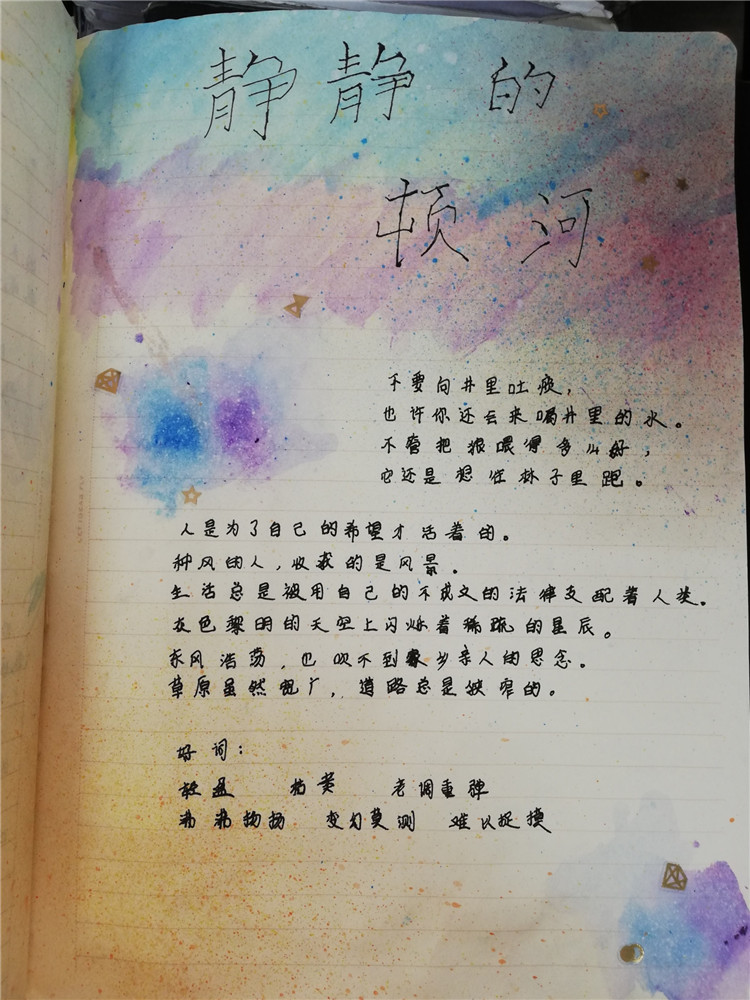 静静的
顿河
不要向井里吐痰，
也许你还会来喝井里的水。
不管把狼喂得多么好，
它还是想往林子里跑。
人是为了自己的希望才活着的。
种风的人，收获的是风暴。
生活总是被用自己的不成文的法律支配着人类。
灰色黎明的天空上闪烁着稀疏的星辰。
东风浩荡，也吹不到家乡亲人的思念。
草原虽然宽广，道路总是狭窄的。
好词：
轻盈 枯黄 老调重弹
沸沸扬扬 变幻莫测 难以捉摸